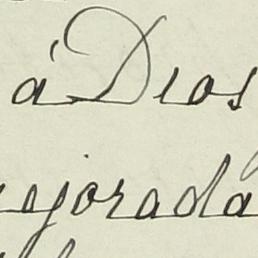 á Dios
ejorada